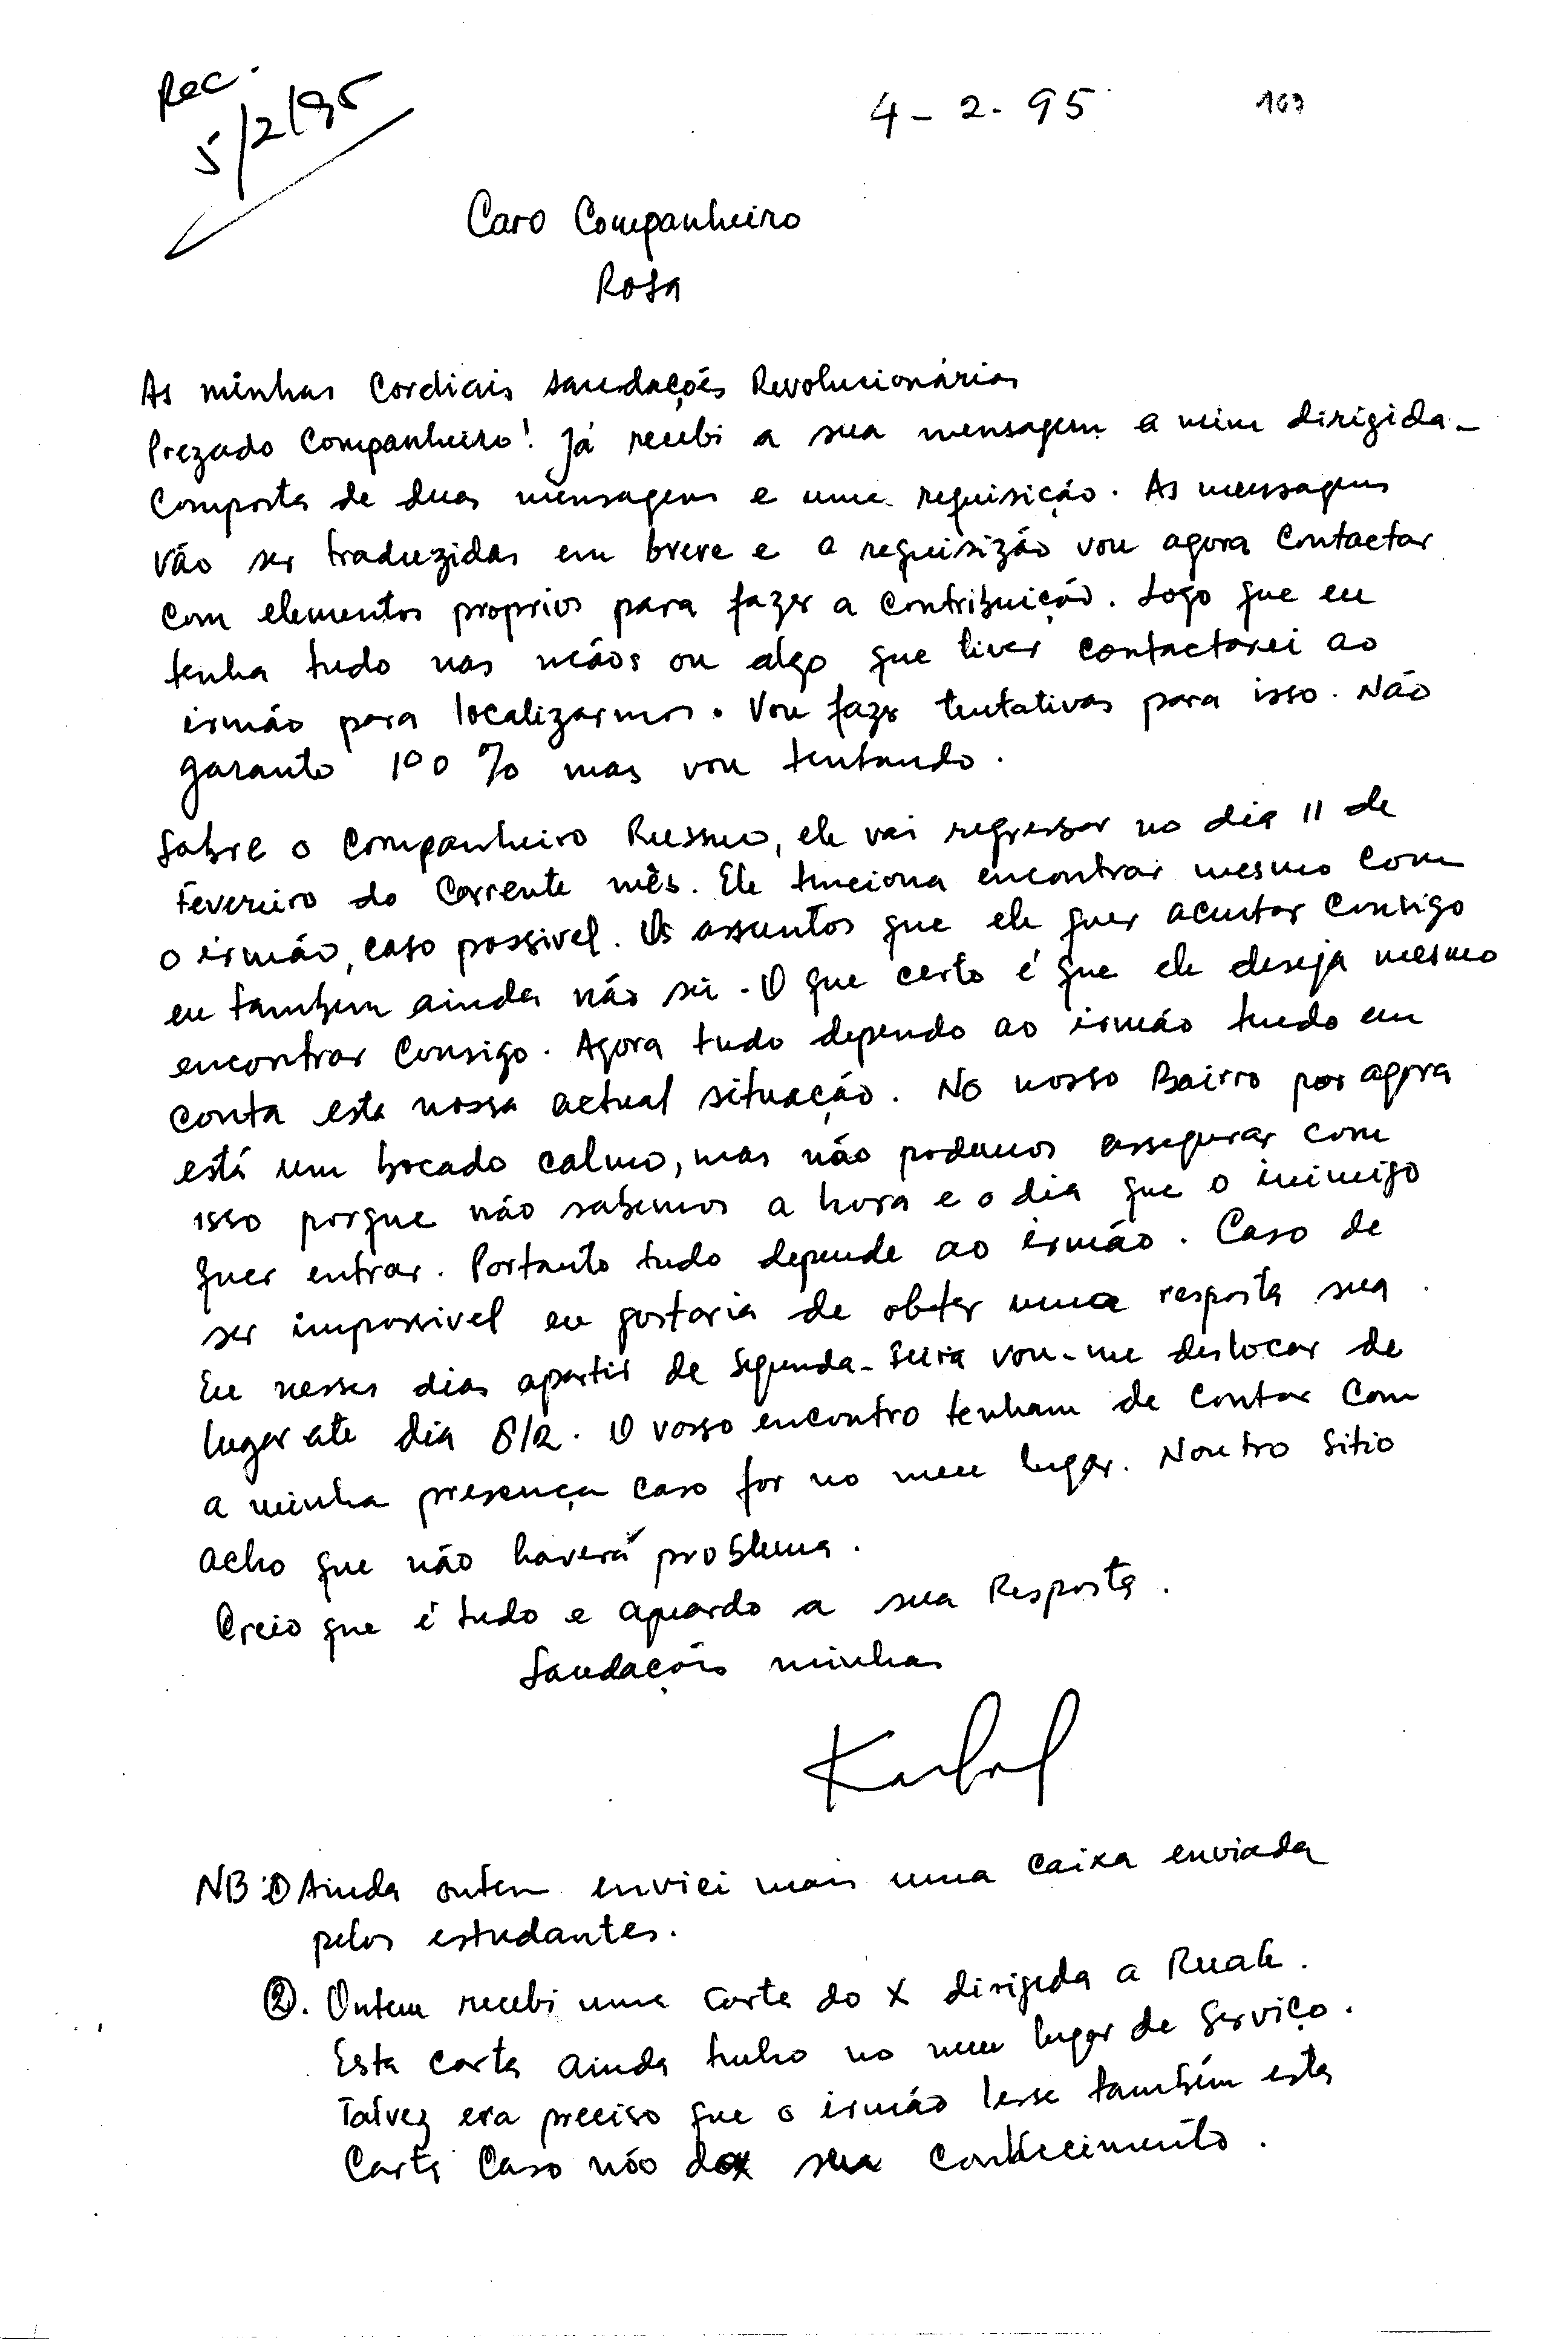 Rec.
5/2/95
4-2.95
Caro Companheiro
Rosa
As minhas Cordiais Saudações Revolucionárias
Prezado Companheiro! Já recebi a sua mensagem a mim dirigida-
Composta de duas mensagens e uma requisição. As mensagens
vão ser traduzidas em breve e a requisizão vou agora contactar
com elementos proprios para fazer a contribuição. Logo que eu
tenha tudo nas mãos ou algo que tiver contactarei ao
irmão para localizarmos. Vou fazer tentativas para isso. Não
garanto 100% mas vou tentando.
Sobre o Companheiro Russuo, ele vai regressar no dia 11 de
Fevereiro do Corrente mês. Ele tenciona encontrar mesmo com
o irmão, caso possivel. Os assuntos que ele quer acentar consigo
eu tambem ainda não sei. O que certo é que ele deseja mesmo
encontrar Consigo. Agora tudo dependo ao irmão tendo em
conta esta nossa actual situação. No nosso Bairro por agora
está um bocado calmo, mas não podemos assegurar com
isso porque não sabemos a hora e o dia que o inimigo
quer entrar. Portanto tudo depende ao irmão. Caso de
ser impossivel eu gostaria de obter uma resposta sua.
Eu nesses dias apartir de Segunda-feira vou-me deslocar de
lugar ate dia 8/2. O vosso encontro tenham de contar com
a minha presença caso for no meu lugar. Noutro Sitio
acho que não haverá problema.
Creio que é tudo e aguardo a sua Resposta.
Saudações minhas
NB: ① Ainda ontem enviei mais uma caixa enviada
pelos estudantes.
②. Ontem recebi uma carta do X dirigida a Ruak.
Esta carta ainda tenho no meu lugar de Serviço.
Talvez era preciso que o irmão lesse também esta
Carta Caso não do seu conhecimento.